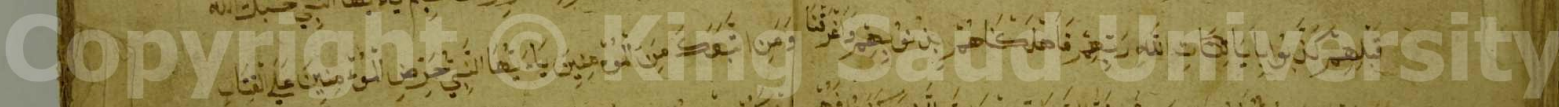 Copyright © King Saud University
يا أيها النبي حسبك الله
قَبْلِهِمْ كَذَّبُوا بِآيَاتِ رَبِّهِمْ فَأَهْلَكْنَاهُمْ بِذُنُوبِهِمْ وَأَغْرَقْنَا
وَمَنِ اتَّبَعَكَ مِنَ الْمُؤْمِنِينَ يَا أَيُّهَا النَّبِيُّ حَرِّضِ الْمُؤْمِنِينَ عَلَى الْقِتَالِ